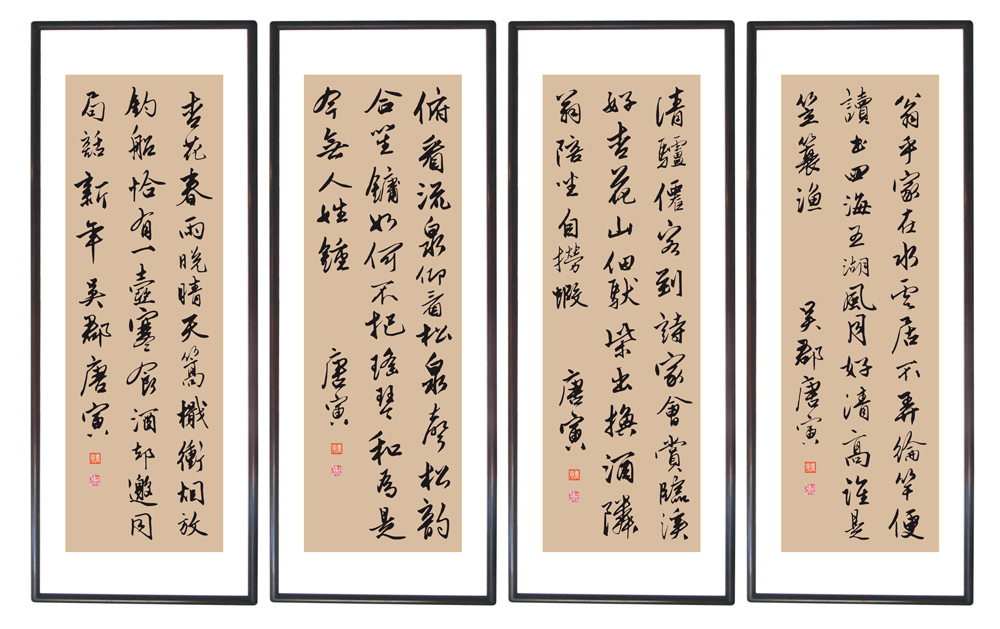 翁年家在水雲居不弄綸竿便
讀書四海五湖風月好清高誰是
笠蓑漁 吳郡唐寅
清驢僊客到詩家會賞臨溪
好杏花山佃馱柴出換酒隣
翁陪坐自撈蝦 唐寅
俯看流泉仰看松泉聲松韵
合笙鏞如何不把瑤琴和為是
今無人姓鍾 唐寅
杏花春雨晚晴天篙檝衝烟放
釣船恰有一壺寒食酒却邀同
局話新年 吳郡唐寅